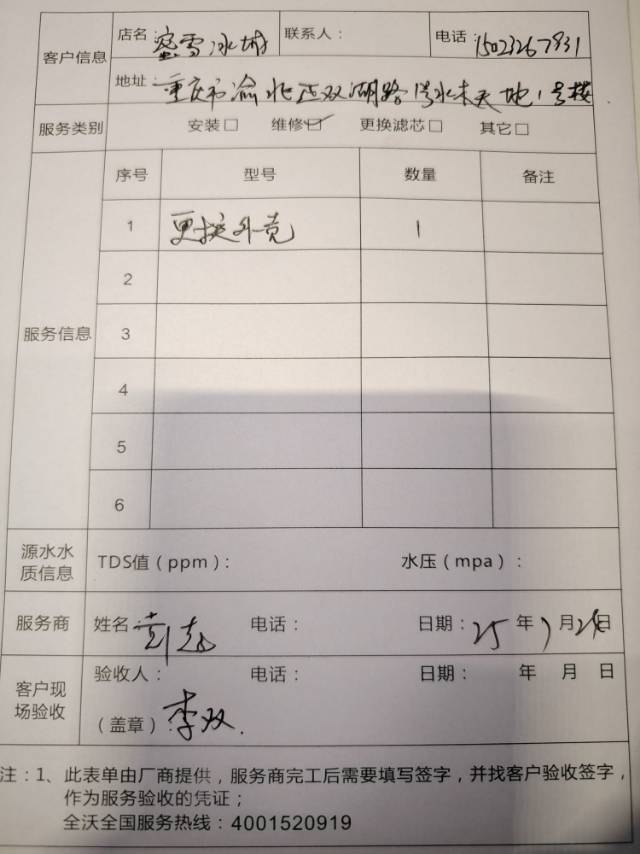 客户信息 店名：蜜雪冰城 联系人： 电话：15023267831
地址：重庆市渝北区双湖路 天地1号楼
服务类别 安装□ 维修☑ 更换滤芯□ 其它□
服务信息 序号 型号 数量 备注
1 更换外壳 1
2
3
4
5
6
源水水质信息 TDS值（ppm）： 水压（mpa）：
服务商 姓名：彭 电话： 日期：25年 月 日
客户现场验收 验收人： 电话： 日期： 年 月 日
（盖章）李双
注：1、此表单由厂商提供，服务商完工后需要填写签字，并找客户验收签字，
作为服务验收的凭证；
全沃全国服务热线：4001520919